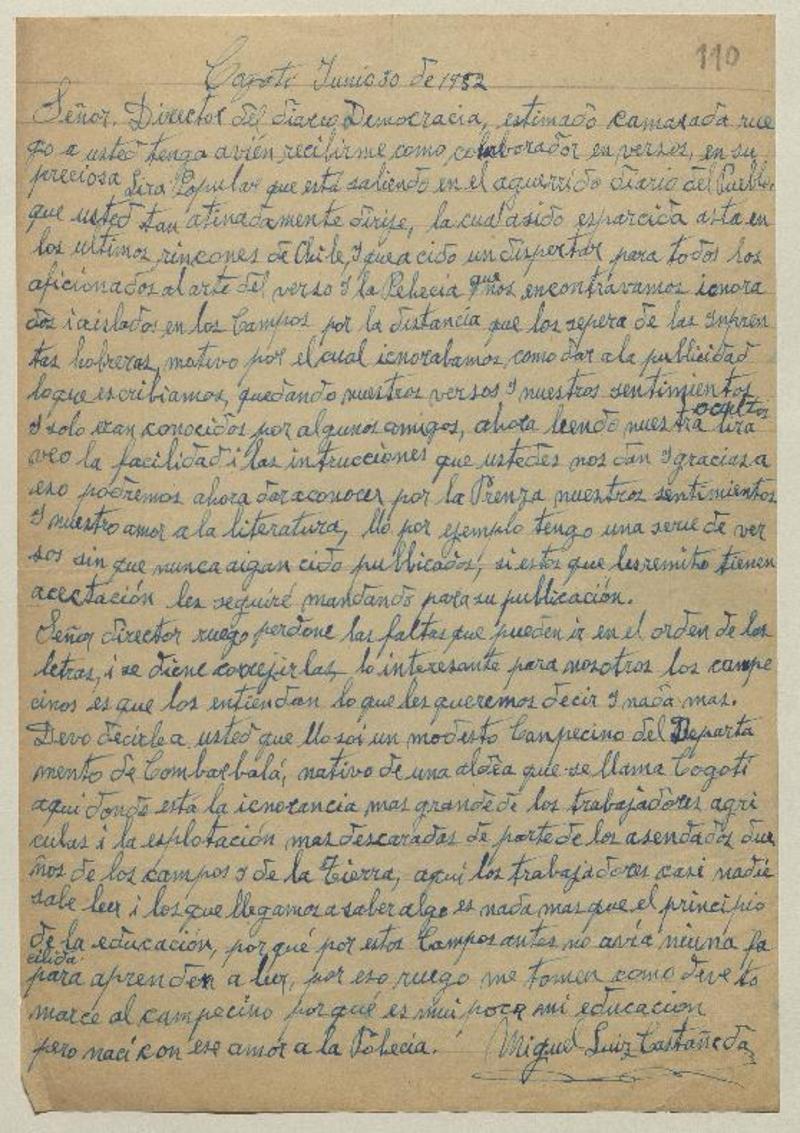 110
Cogoti Junio 30 de 1952
Señor. Director del diario Democracia, estimado camarada rue
go a usted tenga avién recibirme como colaborador en versos, en su
preciosa Lira Popular que está saliendo en el aguerrido diario del Pueblo,
que usted tan atinadamente dirije, la cual asido esparcida asta en
los ultimos rincones de Chile, I que a cido un dispertar para todos los
aficionados al arte del verso I la Pohecia que nos encontrávamos icnora
dos i aislados en los Campos por la distancia que los sepera de las Inpren
tas hobreras, motivo por el cual icnorabamos como dar a la publicidad
loque escribiamos, quedando nuestros versos I nuestros sentimientos
ocultos
I solo eran conocidos por algunos amigos, ahora leendo nuestra lira
veo la facilidad i las intrucciones que ustedes nos dan I gracias a
eso podremos ahora dar a conocer por la Prenza nuestros sentimientos
I nuestro amor a la literatura, llo por ejemplo tengo una serie de ver
sos sin que nunca aigan cido publicados, si estos que les remito tienen
acectación les seguiré mandando para su publicación.
Señor director ruego perdone las faltas que pueden ir en el orden de las
letras, i se diene correjirlas, lo interesante para nosotros los campe
cinos es que los entiendan lo que les queremos decir I nada mas.
Devo decirle a usted que llo soi un modesto Canpecino del Departa
mento de Combarbalá, nativo de una aldea que se llama Cogotí
aqui donde está la icnorancia mas grande de los trabajadores agri
culas i la esplotación mas descaradas de parte de los asendados due
ños de los campos I de la Tierra, aqui los trabajadores casi nadie
sabe leer i los que llegamos a saber algo es nada mas que el principio
de la educación, porqué por estos Campos antes no avía niuna fa
cilida
para aprender a ler, por eso ruego me tomen como deve to
marce al campecino porqué es mui poca mi educacion
pero nací con ese amor a la Pohecia. Miguel Luiz Castañeda